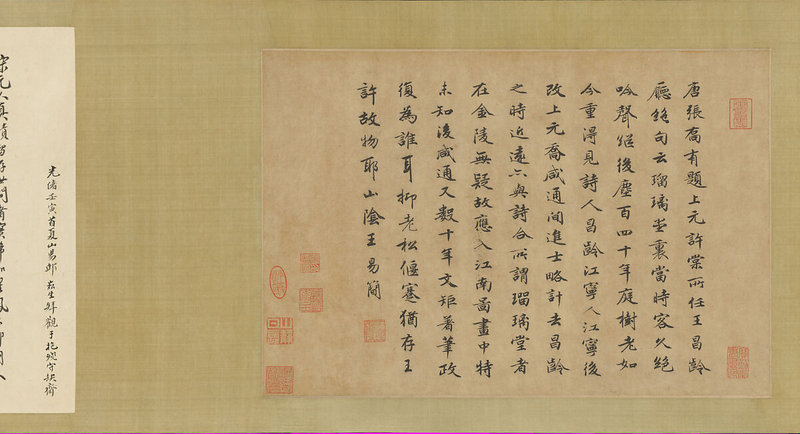 唐張喬有題上元許棠所任王昌齡
廳絕句云瑠璃堂裏當時客久絕
吟聲紹後塵百四十年庭樹老如
今重得見詩人昌齡江寧人江寧後
改上元喬咸通間進士略計去昌齡
之時近遠亦與詩合所謂瑠璃堂者
在金陵無疑故應入江南圖畫中特
未知後咸通又數十年文矩著筆政
復為誰耳抑老松偃蹇猶存王
許故物耶山陰王易簡
光緒壬寅首夏山易拜觀于抱殘守缺齋
宋元人真蹟留存世間者